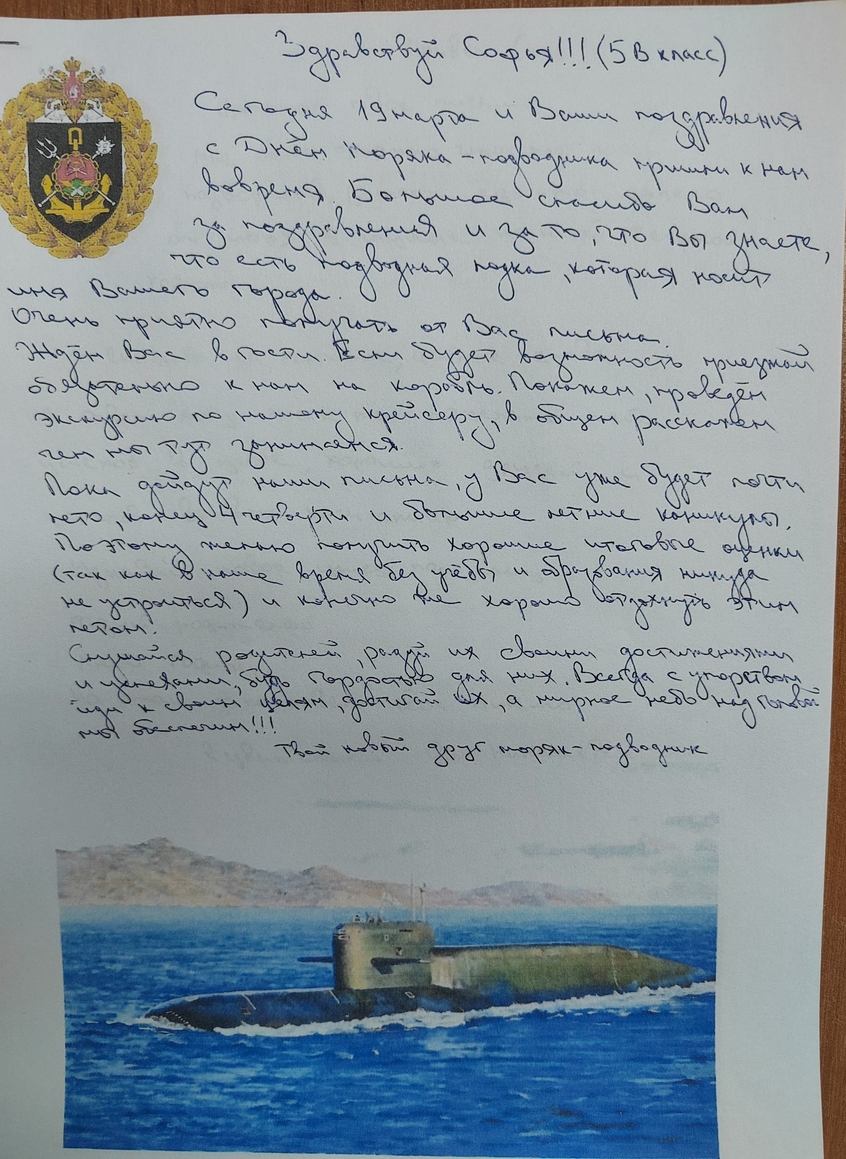 Здравствуй Софья!!! (5 В класс)
Сегодня 19 марта и Ваши поздравления
с Днём Моряка-подводника пришли к нам
вовремя. Большое спасибо Вам
за поздравления и за то, что Вы знаете,
что есть подводная лодка, которая носит
имя Вашего города.
Очень приятно получать от Вас письма.
Ждём Вас в гости. Если будет возможность приезжай
обязательно к нам на корабль. Покажем, проведём
экскурсию по нашему крейсеру, в общем расскажем
чем мы тут занимаемся.
Пока дойдут наши письма, у Вас уже будет почти
лето, конец 4 четверти и большие летние каникулы.
Поэтому желаю получить хорошие итоговые оценки
(так как в наше время без учёбы и образования никуда
не устроиться) и конечно же хорошо отдохнуть этим
летом.
Слушайся родителей, радуй их своими достижениями
и успехами, будь гордостью для них. Всегда с упорством
иди к своим целям, достигай их, а мирное небо над головой
мы обеспечим!!!
Твой новый друг моряк-подводник